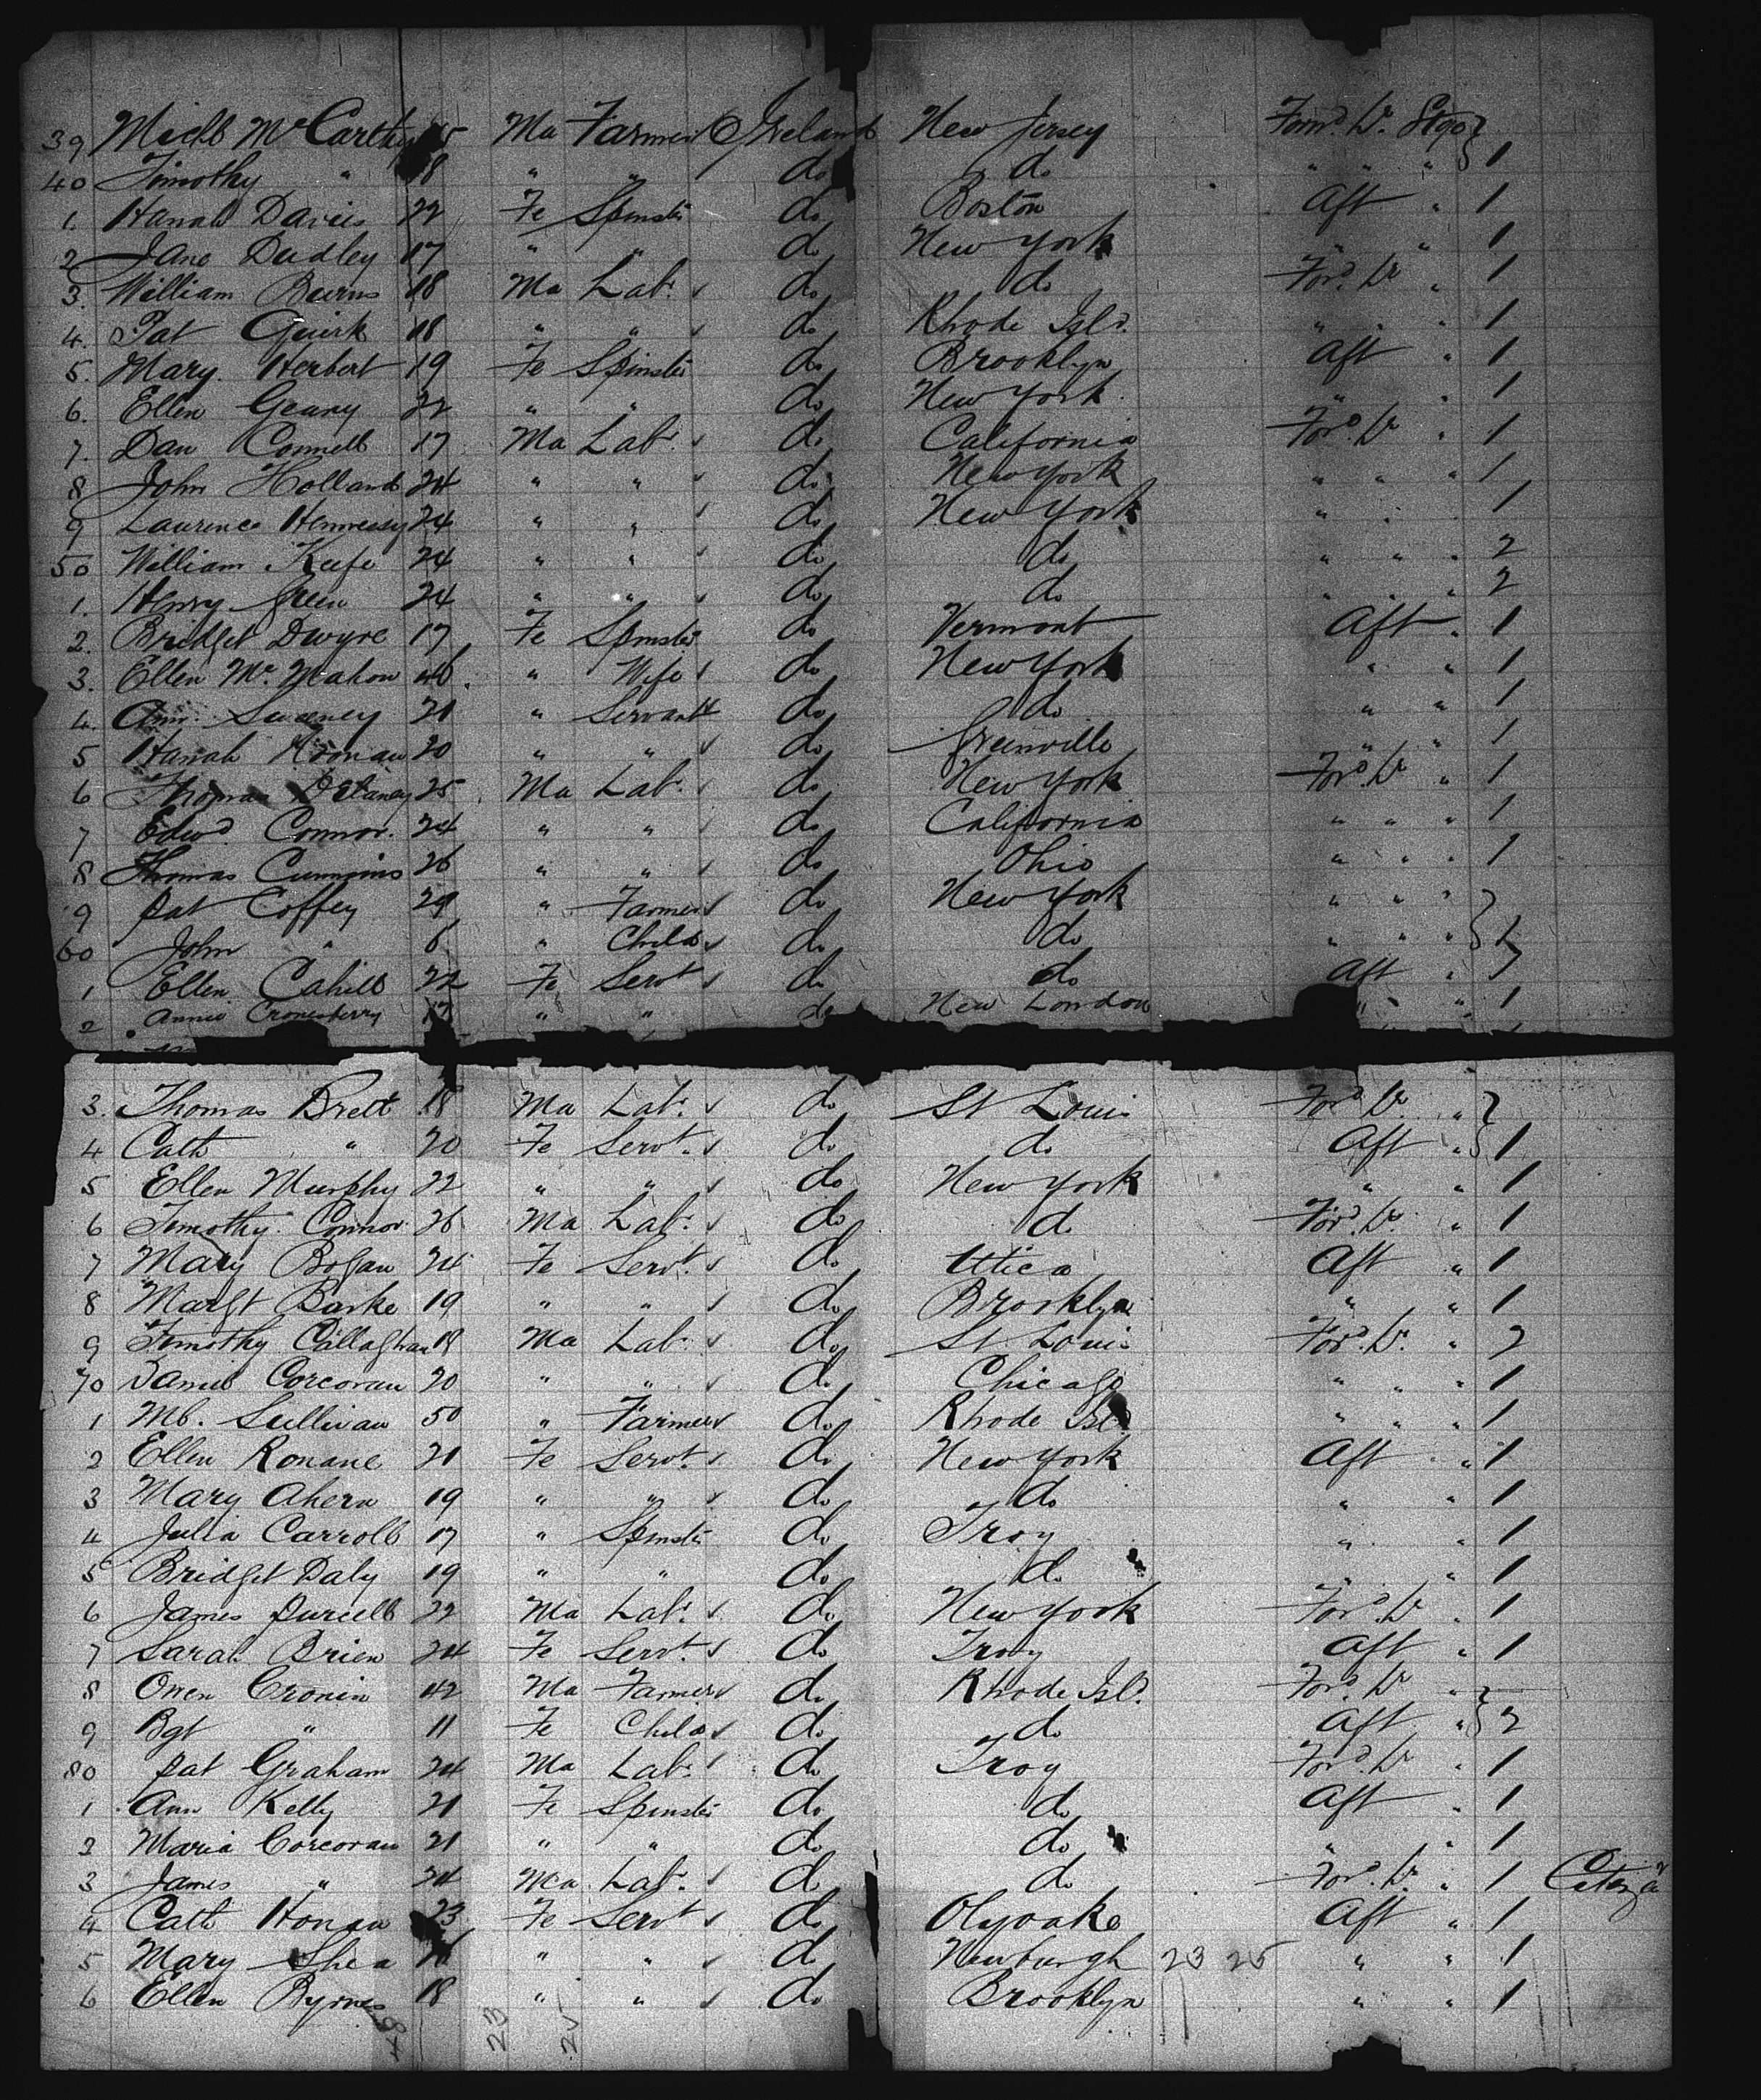 39 Michl McCarthy Ma Farmer Ireland New Jersey Forwd. Dk. Stge } 1
40 Timothy " 18 " " do do " " "
1. Hanah Davies 22 Fe Spinstr do Boston Aft " 1
2 Jane Dudley 17 " " do New York " " 1
3. William Burns 18 Ma Labr. do do Ford. Dk " 1
4. Pat Quirk 18 " " do Rhode Isld. " " " 1
5. Mary Herbert 19 Fe Spinstr do Brooklyn Aft " 1
6. Ellen Geany 22 " " do New York " " 1
7. Dan Connell 17 Ma Labr. do California Ford. Dk " 1
8 John Holland 24 " " do New York " " " 1
9 Laurence Hennessy 24 " " do New York " " " 1
50 William Keefe 24 " " do do " " " 2
1. Henry Green 24 " " do do " " " 2
2. Bridget Dwyre 17 Fe Spinstr do Vermont Aft " 1
3. Ellen Mc Mahon 46 " Wife do New York " " 1
4. Ann Sweeney 21 " Servant do do " " 1
5 Hanah Noonan 20 " " do Greenville " " 1
6 Thomas Delaney 25 Ma Labr. do New York Ford. Dk " 1
7 Edwd Connor. 24 " " do California " " " 1
8 Thomas Cummins 26 " " do Ohio " " " 1
9 Pat Coffey 29 " Farmer do New York " " " }
60 John " 6 " Child do do " " "
1 Ellen Cahill 22 Fe Servt do do Aft "
2 Annie Cronesberry 17 " " do New London " " 1
3. Thomas Brett 18 Ma Labr. do St Louis Ford. Dk. " } 1
4 Cath " 20 Fe Servt. do do Aft "
5 Ellen Murphy 22 " " do New York " " 1
6 Timothy Connor 26 Ma Labr. do do Ford. Dk. " 1
7 Mary Bogan 24 Fe Servt. do Utica Aft " 1
8 Margt Barke 19 " " do Brooklyn " " 1
9 Timothy Callaghan 18 Ma Labr. do St. Louis Ford. Dk. " 2
70 Daniel Corcoran 20 " " do Chicago " " " 1
1 Ml. Sullivan 50 " Farmer do Rhode Isld " " " 1
2 Ellen Ronane 21 Fe Servt. do New York Aft " 1
3 Mary Ahern 19 " " do do " " 1
4 Julia Carroll 17 " Spinstr do Troy " " 1
5 Bridget Daly 19 " " do do " " 1
6 James Purcell 22 Ma Labr. do New York Ford. Dk " 1
7 Sarah Brien 24 Fe Servt. do Troy Aft " 1
8 Owen Cronin 42 Ma Farmer do Rhode Isld. Ford. Dk " } 2
9 Bgt " 11 Fe Child do do Aft "
80 Pat Graham 24 Ma Labr. do Troy Ford. Dk " 1
1 Ann Kelly 21 Fe Spinstr do do Aft " 1
2 Maria Corcoran 21 " " do do " " 1
3 James " 24 Ma Labr. do do Ford. Dk. " 1
4 Cath Honan 23 Fe Servt do Olyoake Aft " 1
5 Mary Shea " " do Newburgh 23 25 " " 1
6 Ellen Byrnes 18 " " do Brooklyn " " 1
48 23 25